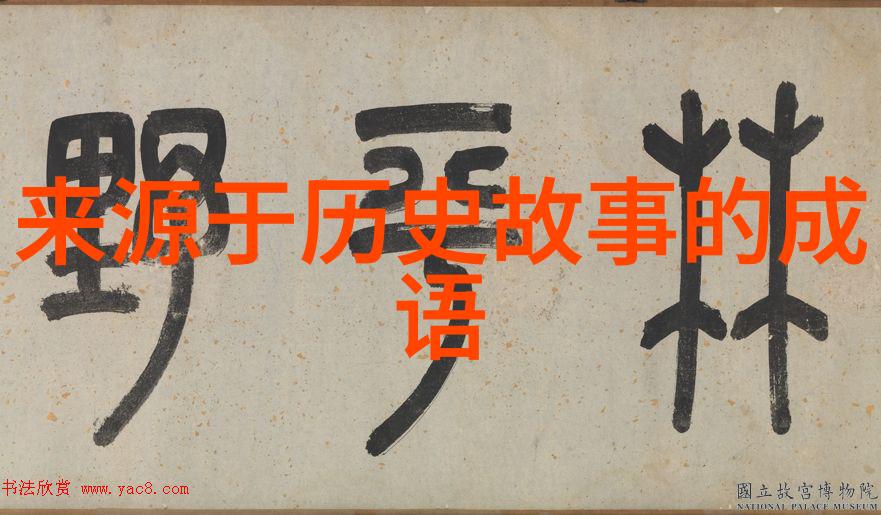 林平野
来源于历史故事的成
语
书法欣赏 www.yac8.com
國立故宮博物院
NATIONAL PALACE MUSEUM